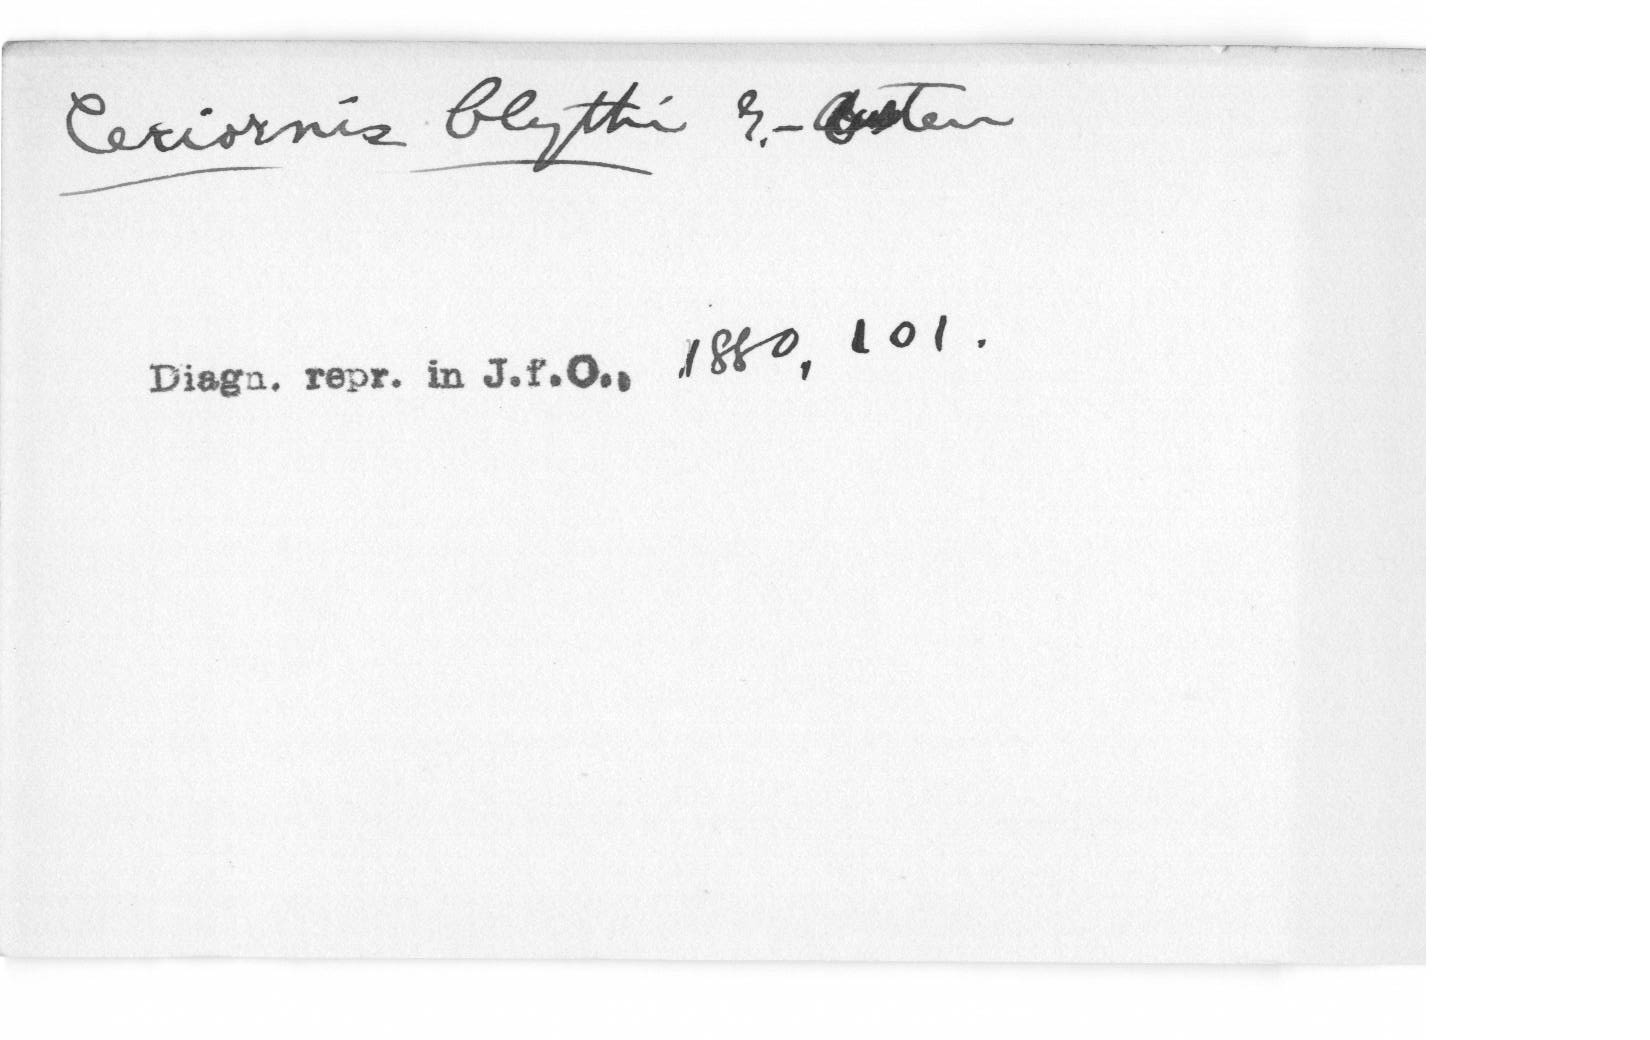 Ceriornis blythi G.-Austen
Diagn. repr. in J.f.O., 1880, 101.